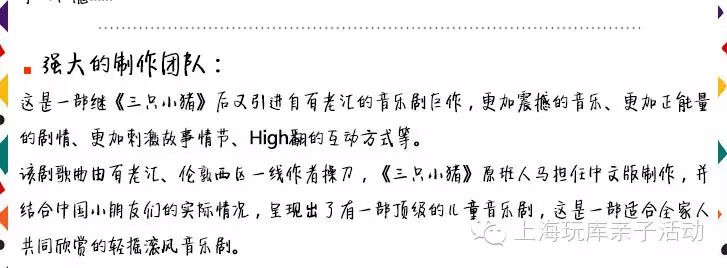 强大的制作团队：
这是一部继《三只小猪》后又引进自百老汇的音乐剧巨作，更加震撼的音乐、更加正能量
的剧情、更加刺激故事情节、High翻的互动方式等。
该剧歌曲由百老汇、伦敦西区一线作者操刀，《三只小猪》原班人马担任中文版制作，并
结合中国小朋友们的实际情况，呈现出了有一部顶级的儿童音乐剧，这是一部适合全家人
共同欣赏的轻摇滚风音乐剧。
上海玩库亲子活动